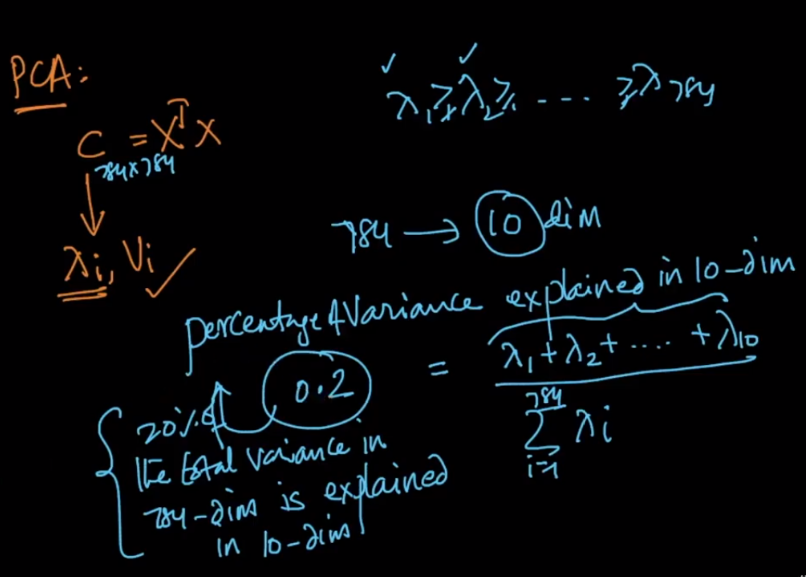 PCA:
λ₁ ≥ λ₂ ≥ .... ≥ λ784
C = Xᵀ X
784x784
λi, Vi ✓
784 → 10 dim
percentage of Variance explained in 10-dim
0.2 = λ₁ + λ₂ + .... + λ10
784
∑ λi
i=1
20% of
the total variance in
784-dim is explained
in 10-dims